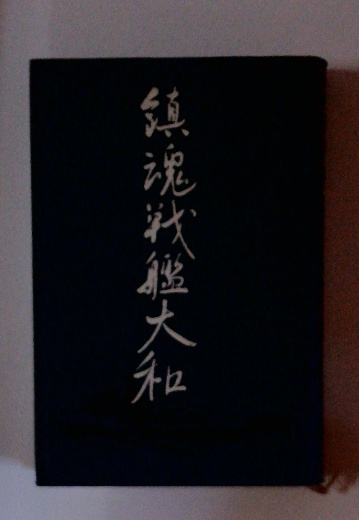 鎮魂戦艦大和